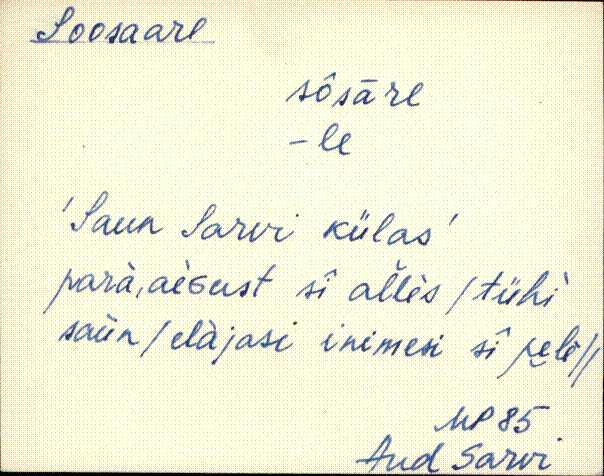 Soosaare
sôsāre
-le
'Saun Sarvi külas'
parà, aèGust sî allès / tühì
saùn / elàjasi inimesi sî pelè //
MP 85
Aud Sarvi